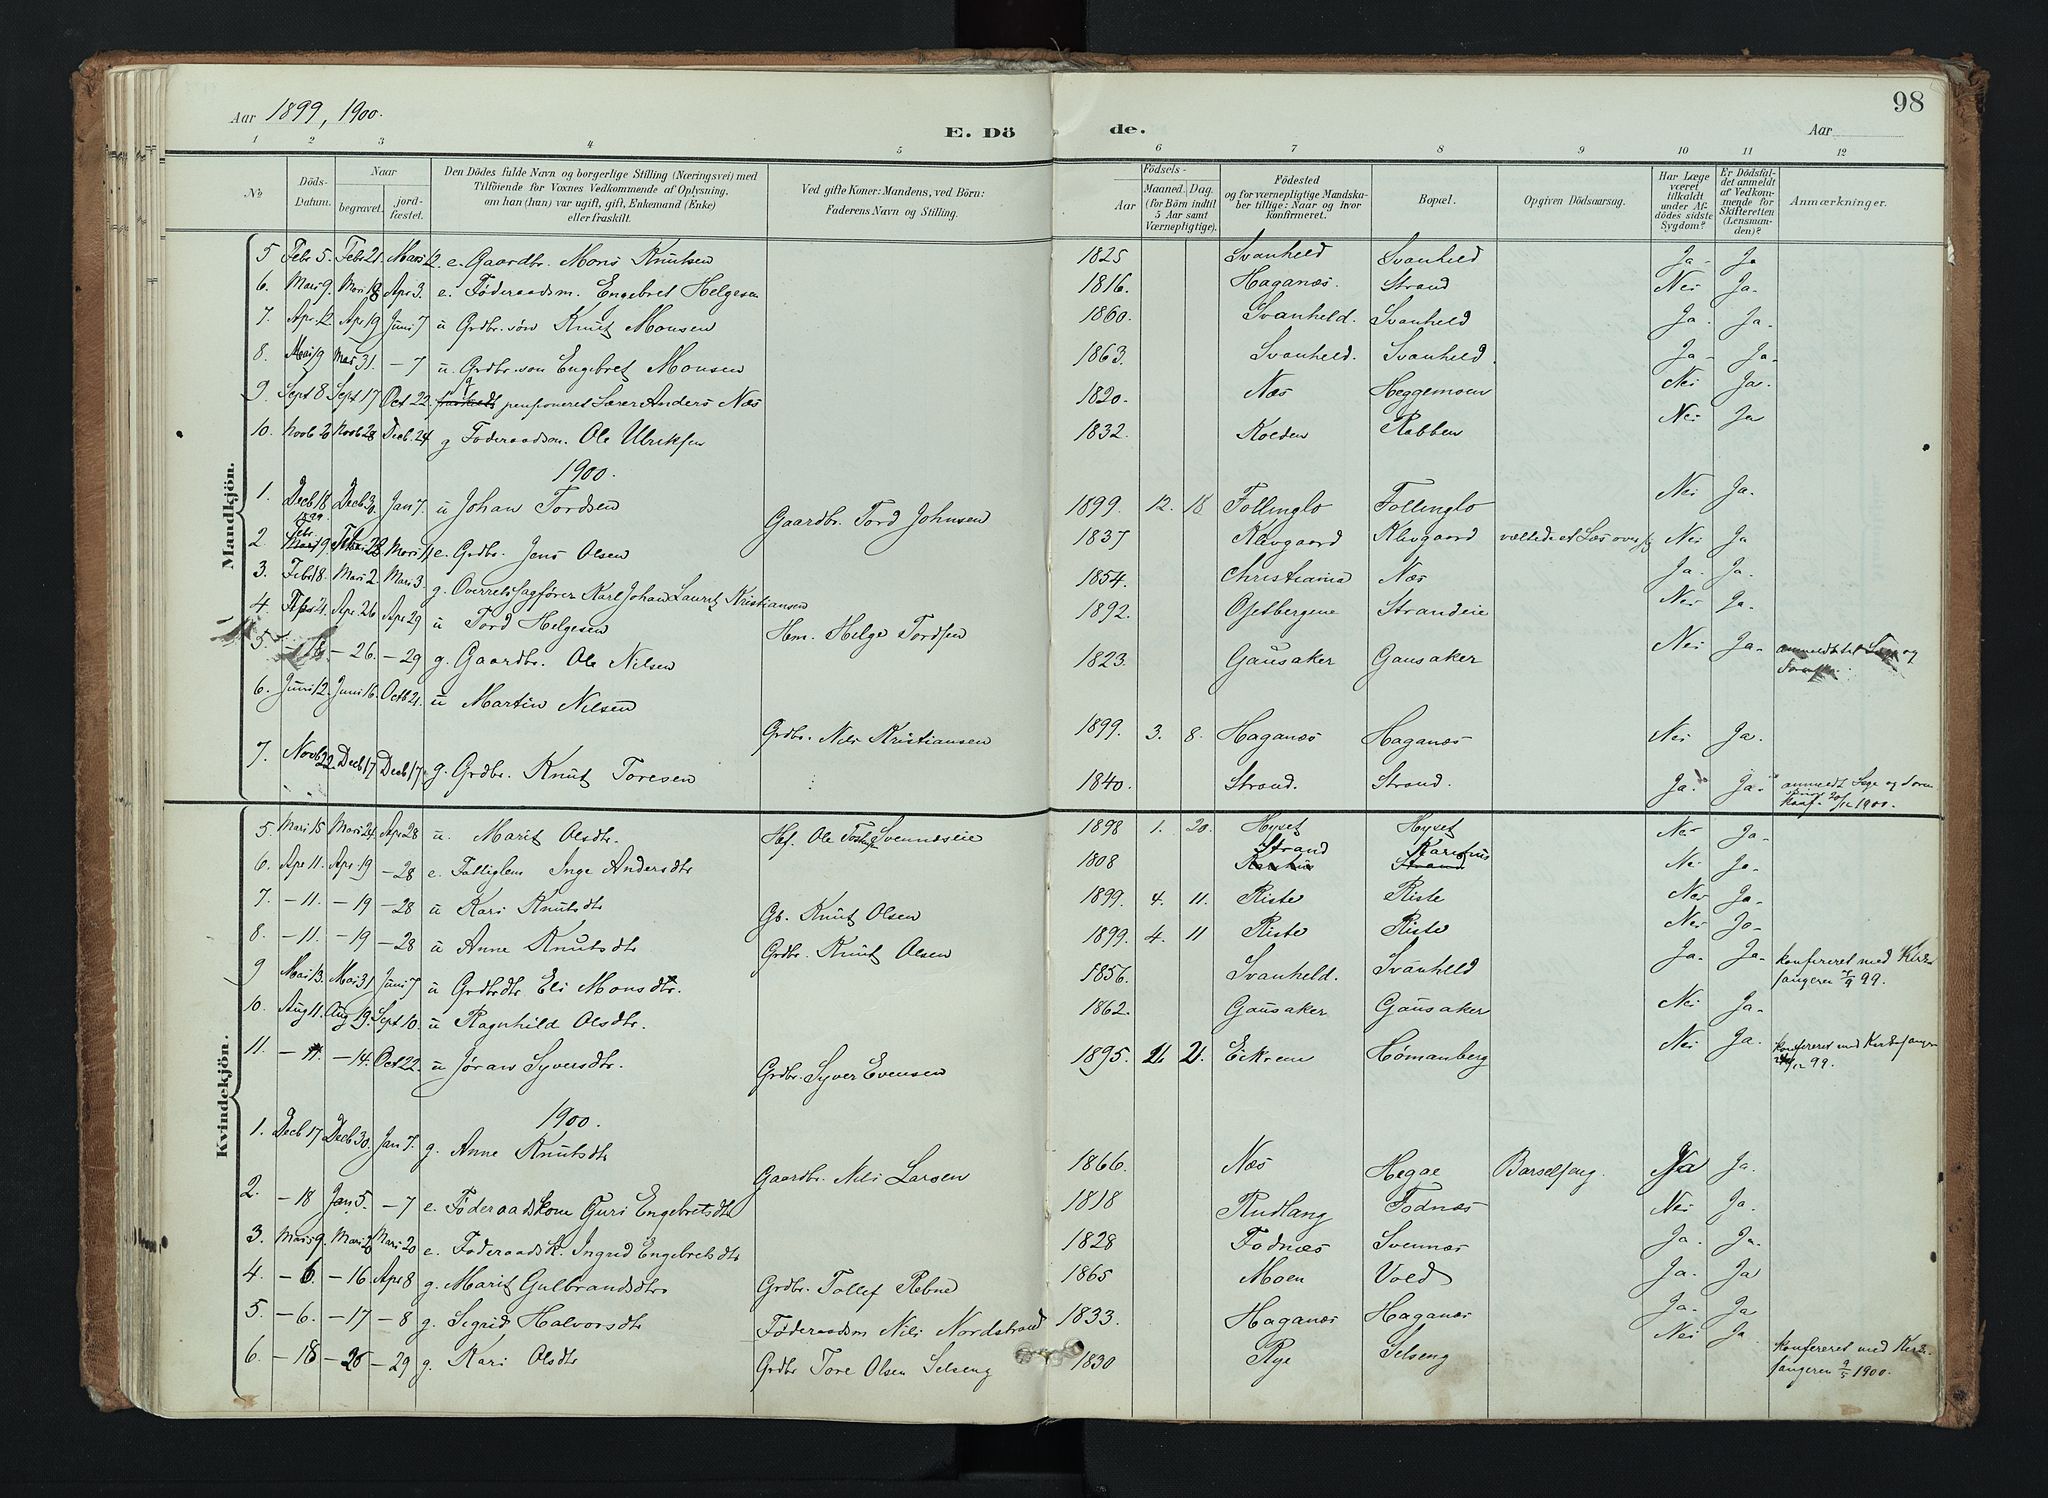 Aar 1899, 1900.
E. Dö
de.
Aar
98
1 2 3 4 5 6 7 8 9 10 11 12
No.
Döds-Datum.
Naar
begravet.
jord-fæstet.
Den Dödes fulde Navn og borgerlige Stilling (Næringsvei) med
Tilföiende for Voxnes Vedkommende af Oplysning,
om han (hun) var ugift, gift, Enkemand (Enke)
eller fraskilt.
Ved gifte Koner: Mandens, ved Börn:
Faderens Navn og Stilling.
Födsels-
Aar
Maaned. Dag.
(for Börn indtil
5 Aar samt
Værnepligtige).
Födested
og for værnepligtige Mandska-
ber tillige: Naar og hvor
konfirmeret.
Bopæl.
Opgiven Dödsaarsag.
Har Læge
været
tilkaldt
under Af-
dödes sidste
Sygdom?
Er Dödsfal-
det anmeldt
af Vedkom-
mende for
Skifteretten
(Lensman-
den)?
Anmærkninger.
Mandkjön.
5 Febr 5. Febr 21. Mars 12. e. Gaardbr. Mons Knutsen 1825 Svanheld Svanheld Ja - Ja
6. Mars 9. Mars 18 Apr 3. e. Føderaadsm. Engebret Helgesen 1816. Haganæs. Strand Nei Ja.
7. Apr. 12 Apr 19 Juni 7 u Grdbr. søn Knut Monsen 1860. Svanheld. Svanheld Ja. Ja.
8. Mai 19 Mai 31 - 7 u. Grdbr. søn Engebret Monsen 1863. Svanheld. Svanheld. Ja - Ja -
9. Sept 8 Sept 17 Oct 22. g pensioneret Lærer Anders Næs 1820. Næs Heggemoen Nei Ja.
10. Novb 20 Novb 28 Decb 24 g Føderaadsm. Ole Ulriksen 1832. Kolden Rabben Nei Ja
1900.
1. Decb 18 1899. Decb 30. Jan 7. u Johan Tordsen Gaardbr. Tord Johnsen 1899. 12. 18 Follinglo Follinglo Nei Ja.
2 Feb 19 Feb 28 Mars 11 e. Grdbr. Jens Olsen 1837 Klevgaard Klevgaard væltede et Læs over sig Nei Ja
3. Febr 18. Mars 2. Mars 3. g. Overretssagfører Karl Johan Lauritz Kristiansen 1854. Christiania Næs Ja. Ja.
4. Apr 21. Apr. 26 Apr 29 u Tord Helgesen Hm. Helge Tordsen 1892. Ojetbergene Strandeie Nei Ja.
5. - 16 - 26. - 29 g. Gaardbr. Ole Nilsen 1823. Gausaker Gausaker Nei Ja - anmeldt til Lege og
6. Juni 12. Juni 16. Octb 21. u Martin Nilsen Grdbr. Nils Kristiansen 1899. 3. 8. Haganæs Haganæs Nei Ja.
7. Novb 22. Decb 17 Decb 17. g. Grdbr. Knut Toresen 1840. Strand. Strand. Ja. Ja. anmeldt Lege og
20/12 1900.
Kvindekjön.
5. Mars 15 Mars 24. Apr 28 u. Marit Olsdtr. Hf. Ole Svennæseie 1898 1. 20. Hyset Hyset Nei Ja -
6. Apr 11. Apr. 19 - 28 e. Fattiglem Inge Andersdtr 1808 Strand Karihus Nei Ja.
7. - 11. - 19 - 28 u Kari Knutsdtr Gb. Knut Olsen 1899. 4. 11. Riste Riste Nei Ja -
8. - 11. - 19 - 28 u Anne Knutsdtr Grdbr. Knut Olsen 1899. 4. 11 Riste Riste Nei Ja -
9 Mai 13. Mai 31 Juni 7 u Grdbrdtr Eli Monsdtr. 1856. Svanheld. Svanheld Ja - Ja - konfereret med Kirke-
sangeren 7/9 99.
10. Aug 11. Aug 19. Sept 10. u Ragnhild Olsdtr. 1862. Gausaker Gausaker Nei Ja -
11. - 11. - 14. Oct 22. u Jøran Syversdtr. Grdbr. Syver Evensen 1895. 21. Eikren Hømanberg Nei Ja. konfereret med Kirkesangeren
24/12 99.
1900.
1. Decb 17 Decb 30. Jan 7. g. Anne Knutsdtr Gaardbr. Nils Larsen 1866. Næs Hegge Barselseng. Ja Ja.
2. - 18 Jan 5. - 7 e. Føderaadskone Guri Engebretsdtr 1818 Rudlang Fodnæs Nei Ja.
3. Mars 9. Mars 20 Mars 20 e. Føderaadsk. Ingrid Engebretsdtr 1828 Fodnæs Svennæs Ja. Ja.
4. - 6. - 16 Apr 8 g. Marit Gulbrandsdtr Grdbr. Tollef Rebne 1865 Moen Vold Ja. Ja
5. - 6. - 17 - 8 g. Sigrid Halvorsdtr Føderaadsm Nils Nordstrand 1833. Haganæs Haganæs Ja. Ja
6. - 18 - 25 - 29 g. Kari Olsdtr Grdbr Tore Olsen Selseng 1830 Rye Selseng Nei Ja konfereret med Kirke-
sangeren 9/5 1900.